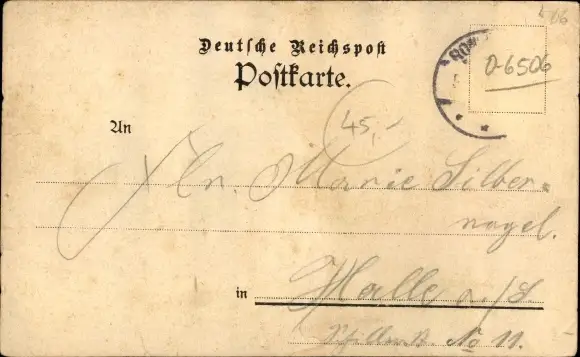 506
Deutsche Reichspost
Postkarte.
0-6506
45,-
An
Frln. Marie Silber-
nagel.
in Halle a/S.
No 11.